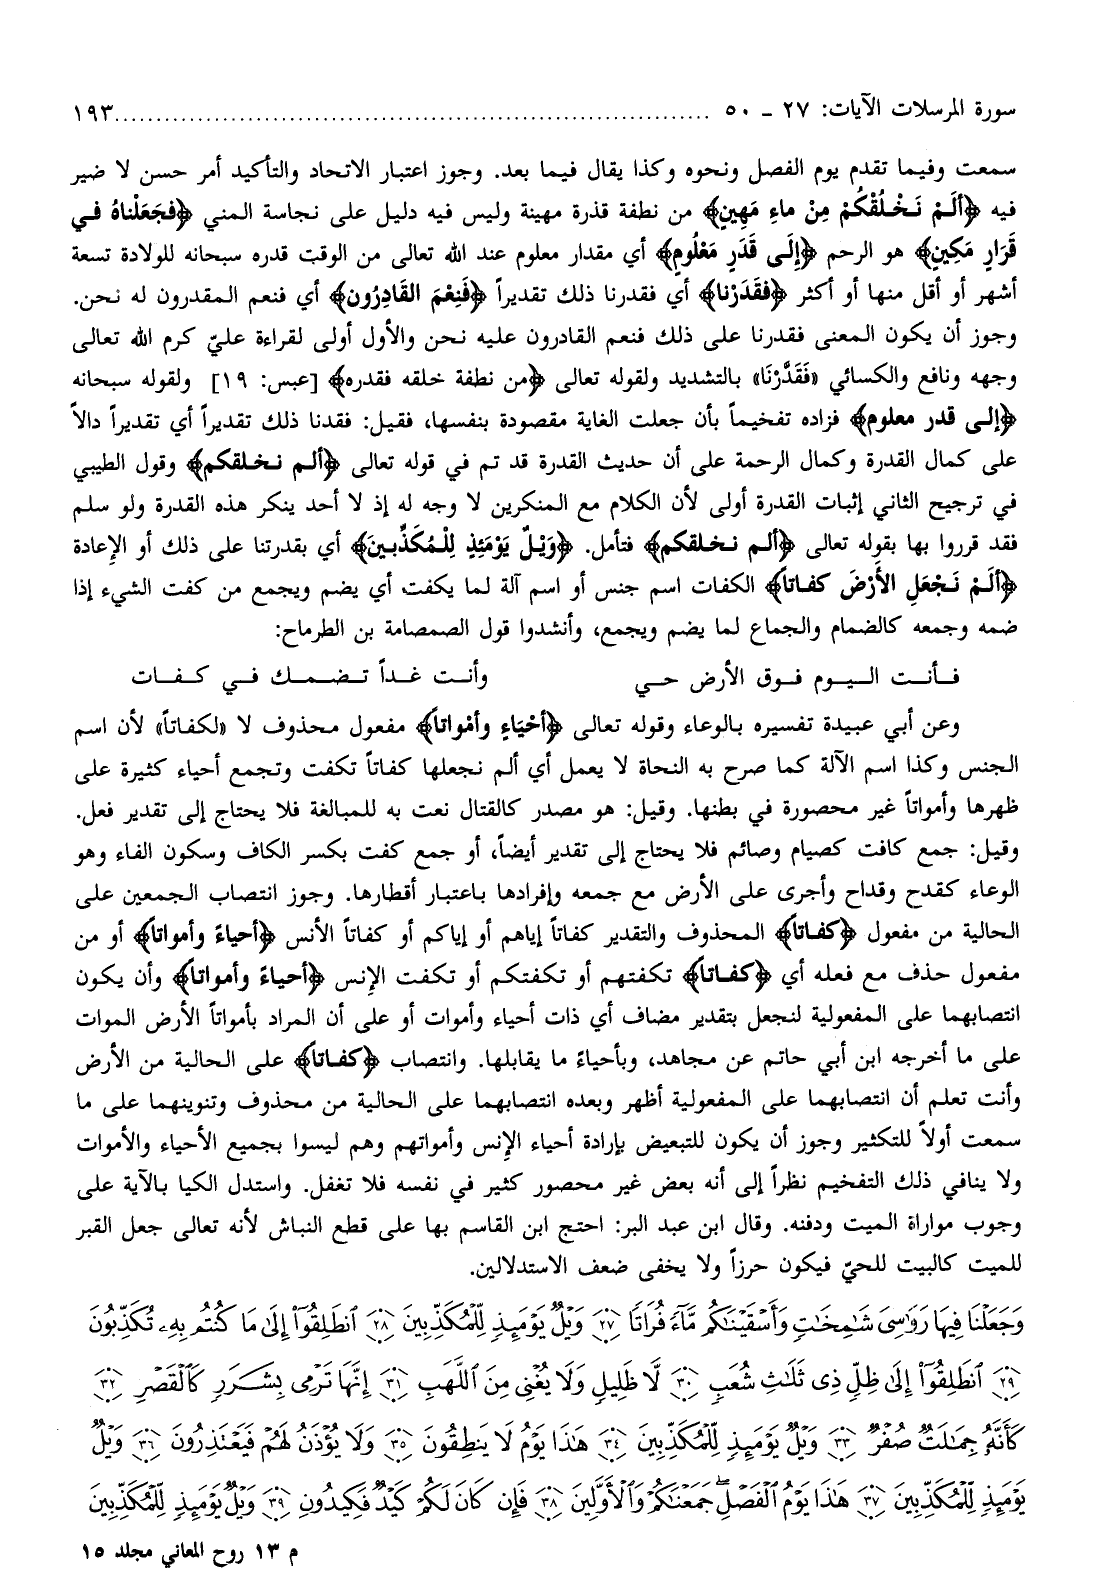 سورة المرسلات الآيات: ٢٧ ـ ٥٠ ........................................................................ ١٩٣
سمعت وفيما تقدم يوم الفصل ونحوه وكذا يقال فيما بعد. وجوز اعتبار الاتحاد والتأكيد أمر حسن لا ضير
فيه ﴿أَلَمْ نَخْلُقْكُمْ مِنْ ماءٍ مَهِينٍ﴾ من نطفة قذرة مهينة وليس فيه دليل على نجاسة المني ﴿فجَعَلْناهُ في
قَرَارٍ مَكِينٍ﴾ هو الرحم ﴿إلَى قَدَرٍ مَعْلُومٍ﴾ أي مقدار معلوم عند الله تعالى من الوقت قدره سبحانه للولادة تسعة
أشهر أو أقل منها أو أكثر ﴿فقَدَرْنا﴾ أي فقدرنا ذلك تقديراً ﴿فَنِعْمَ القَادِرُون﴾ أي فنعم المقدرون له نحن.
وجوز أن يكون المعنى فقدرنا على ذلك فنعم القادرون عليه نحن والأول أولى لقراءة عليّ كرم الله تعالى
وجهه ونافع والكسائي «فَقَدَّرْنَا» بالتشديد ولقوله تعالى ﴿من نطفة خلقه فقدره﴾ [عبس: ١٩] ولقوله سبحانه
﴿إلى قدر معلوم﴾ فزاده تفخيماً بأن جعلت الغاية مقصودة بنفسها، فقيل: فقدنا ذلك تقديراً أي تقديراً دالاً
على كمال القدرة وكمال الرحمة على أن حديث القدرة قد تم في قوله تعالى ﴿ألم نخلقكم﴾ وقول الطيبي
في ترجيح الثاني إثبات القدرة أولى لأن الكلام مع المنكرين لا وجه له إذ لا أحد ينكر هذه القدرة ولو سلم
فقد قرروا بها بقوله تعالى ﴿ألم نخلقكم﴾ فتأمل. ﴿وَيْلٌ يَوْمَئِذٍ لِلْمُكَذِّبِينَ﴾ أي بقدرتنا على ذلك أو الإعادة
﴿أَلَمْ نَجْعَلِ الأَرْضَ كفَاتاً﴾ الكفات اسم جنس أو اسم آلة لما يكفت أي يضم ويجمع من كفت الشيء إذا
ضمه وجمعه كالضمام والجماع لما يضم ويجمع، وأنشدوا قول الصمصامة بن الطرماح:
فـأنت الـيـوم فـوق الأرض حـي وأنـت غـداً تـضـمـك فـي كـفـات
وعن أبي عبيدة تفسيره بالوعاء وقوله تعالى ﴿أحْيَاءٍ وأمْواتاً﴾ مفعول محذوف لا «لكفاتاً» لأن اسم
الجنس وكذا اسم الآلة كما صرح به النحاة لا يعمل أي ألم نجعلها كفاتاً تكفت وتجمع أحياء كثيرة على
ظهرها وأمواتاً غير محصورة في بطنها. وقيل: هو مصدر كالقتال نعت به للمبالغة فلا يحتاج إلى تقدير فعل.
وقيل: جمع كافت كصيام وصائم فلا يحتاج إلى تقدير أيضاً، أو جمع كفت بكسر الكاف وسكون الفاء وهو
الوعاء كقدح وقداح وأجرى على الأرض مع جمعه وإفرادها باعتبار أقطارها. وجوز انتصاب الجمعين على
الحالية من مفعول ﴿كفاتاً﴾ المحذوف والتقدير كفاتاً إياهم أو إياكم أو كفاتاً الأنس ﴿أحياءً وأمواتاً﴾ أو من
مفعول حذف مع فعله أي ﴿كفاتاً﴾ تكفتهم أو تكفتكم أو تكفت الإنس ﴿أحياءً وأمواتاً﴾ وأن يكون
انتصابهما على المفعولية لنجعل بتقدير مضاف أي ذات أحياء وأموات أو على أن المراد بأمواتاً الأرض الموات
على ما أخرجه ابن أبي حاتم عن مجاهد، وبأحياءً ما يقابلها. وانتصاب ﴿كفاتاً﴾ على الحالية من الأرض
وأنت تعلم أن انتصابهما على المفعولية أظهر وبعده انتصابهما على الحالية من محذوف وتنوينهما على ما
سمعت أولاً للتكثير وجوز أن يكون للتبعيض بإرادة أحياء الإنس وأمواتهم وهم ليسوا بجميع الأحياء والأموات
ولا ينافي ذلك التفخيم نظراً إلى أنه بعض غير محصور كثير في نفسه فلا تغفل. واستدل الكيا بالآية على
وجوب مواراة الميت ودفنه. وقال ابن عبد البر: احتج ابن القاسم بها على قطع النباش لأنه تعالى جعل القبر
للميت كالبيت للحيّ فيكون حرزاً ولا يخفى ضعف الاستدلالين.
وَجَعَلْنَا فِيهَا رَوَٰسِىَ شَٰمِخَٰتٍ وَأَسْقَيْنَٰكُم مَّآءً فُرَاتًا ٢٧ وَيْلٌ يَوْمَئِذٍ لِّلْمُكَذِّبِينَ ٢٨ ٱنطَلِقُوٓا۟ إِلَىٰ مَا كُنتُم بِهِۦ تُكَذِّبُونَ
٢٩ ٱنطَلِقُوٓا۟ إِلَىٰ ظِلٍّ ذِى ثَلَٰثِ شُعَبٍ ٣٠ لَّا ظَلِيلٍ وَلَا يُغْنِى مِنَ ٱللَّهَبِ ٣١ إِنَّهَا تَرْمِى بِشَرَرٍ كَٱلْقَصْرِ ٣٢
كَأَنَّهُۥ جِمَٰلَتٌ صُفْرٌ ٣٣ وَيْلٌ يَوْمَئِذٍ لِّلْمُكَذِّبِينَ ٣٤ هَٰذَا يَوْمُ لَا يَنطِقُونَ ٣٥ وَلَا يُؤْذَنُ لَهُمْ فَيَعْتَذِرُونَ ٣٦ وَيْلٌ
يَوْمَئِذٍ لِّلْمُكَذِّبِينَ ٣٧ هَٰذَا يَوْمُ ٱلْفَصْلِ جَمَعْنَٰكُمْ وَٱلْأَوَّلِينَ ٣٨ فَإِن كَانَ لَكُمْ كَيْدٌ فَكِيدُونِ ٣٩ وَيْلٌ يَوْمَئِذٍ لِّلْمُكَذِّبِينَ
م ١٣ روح المعاني مجلد ١٥